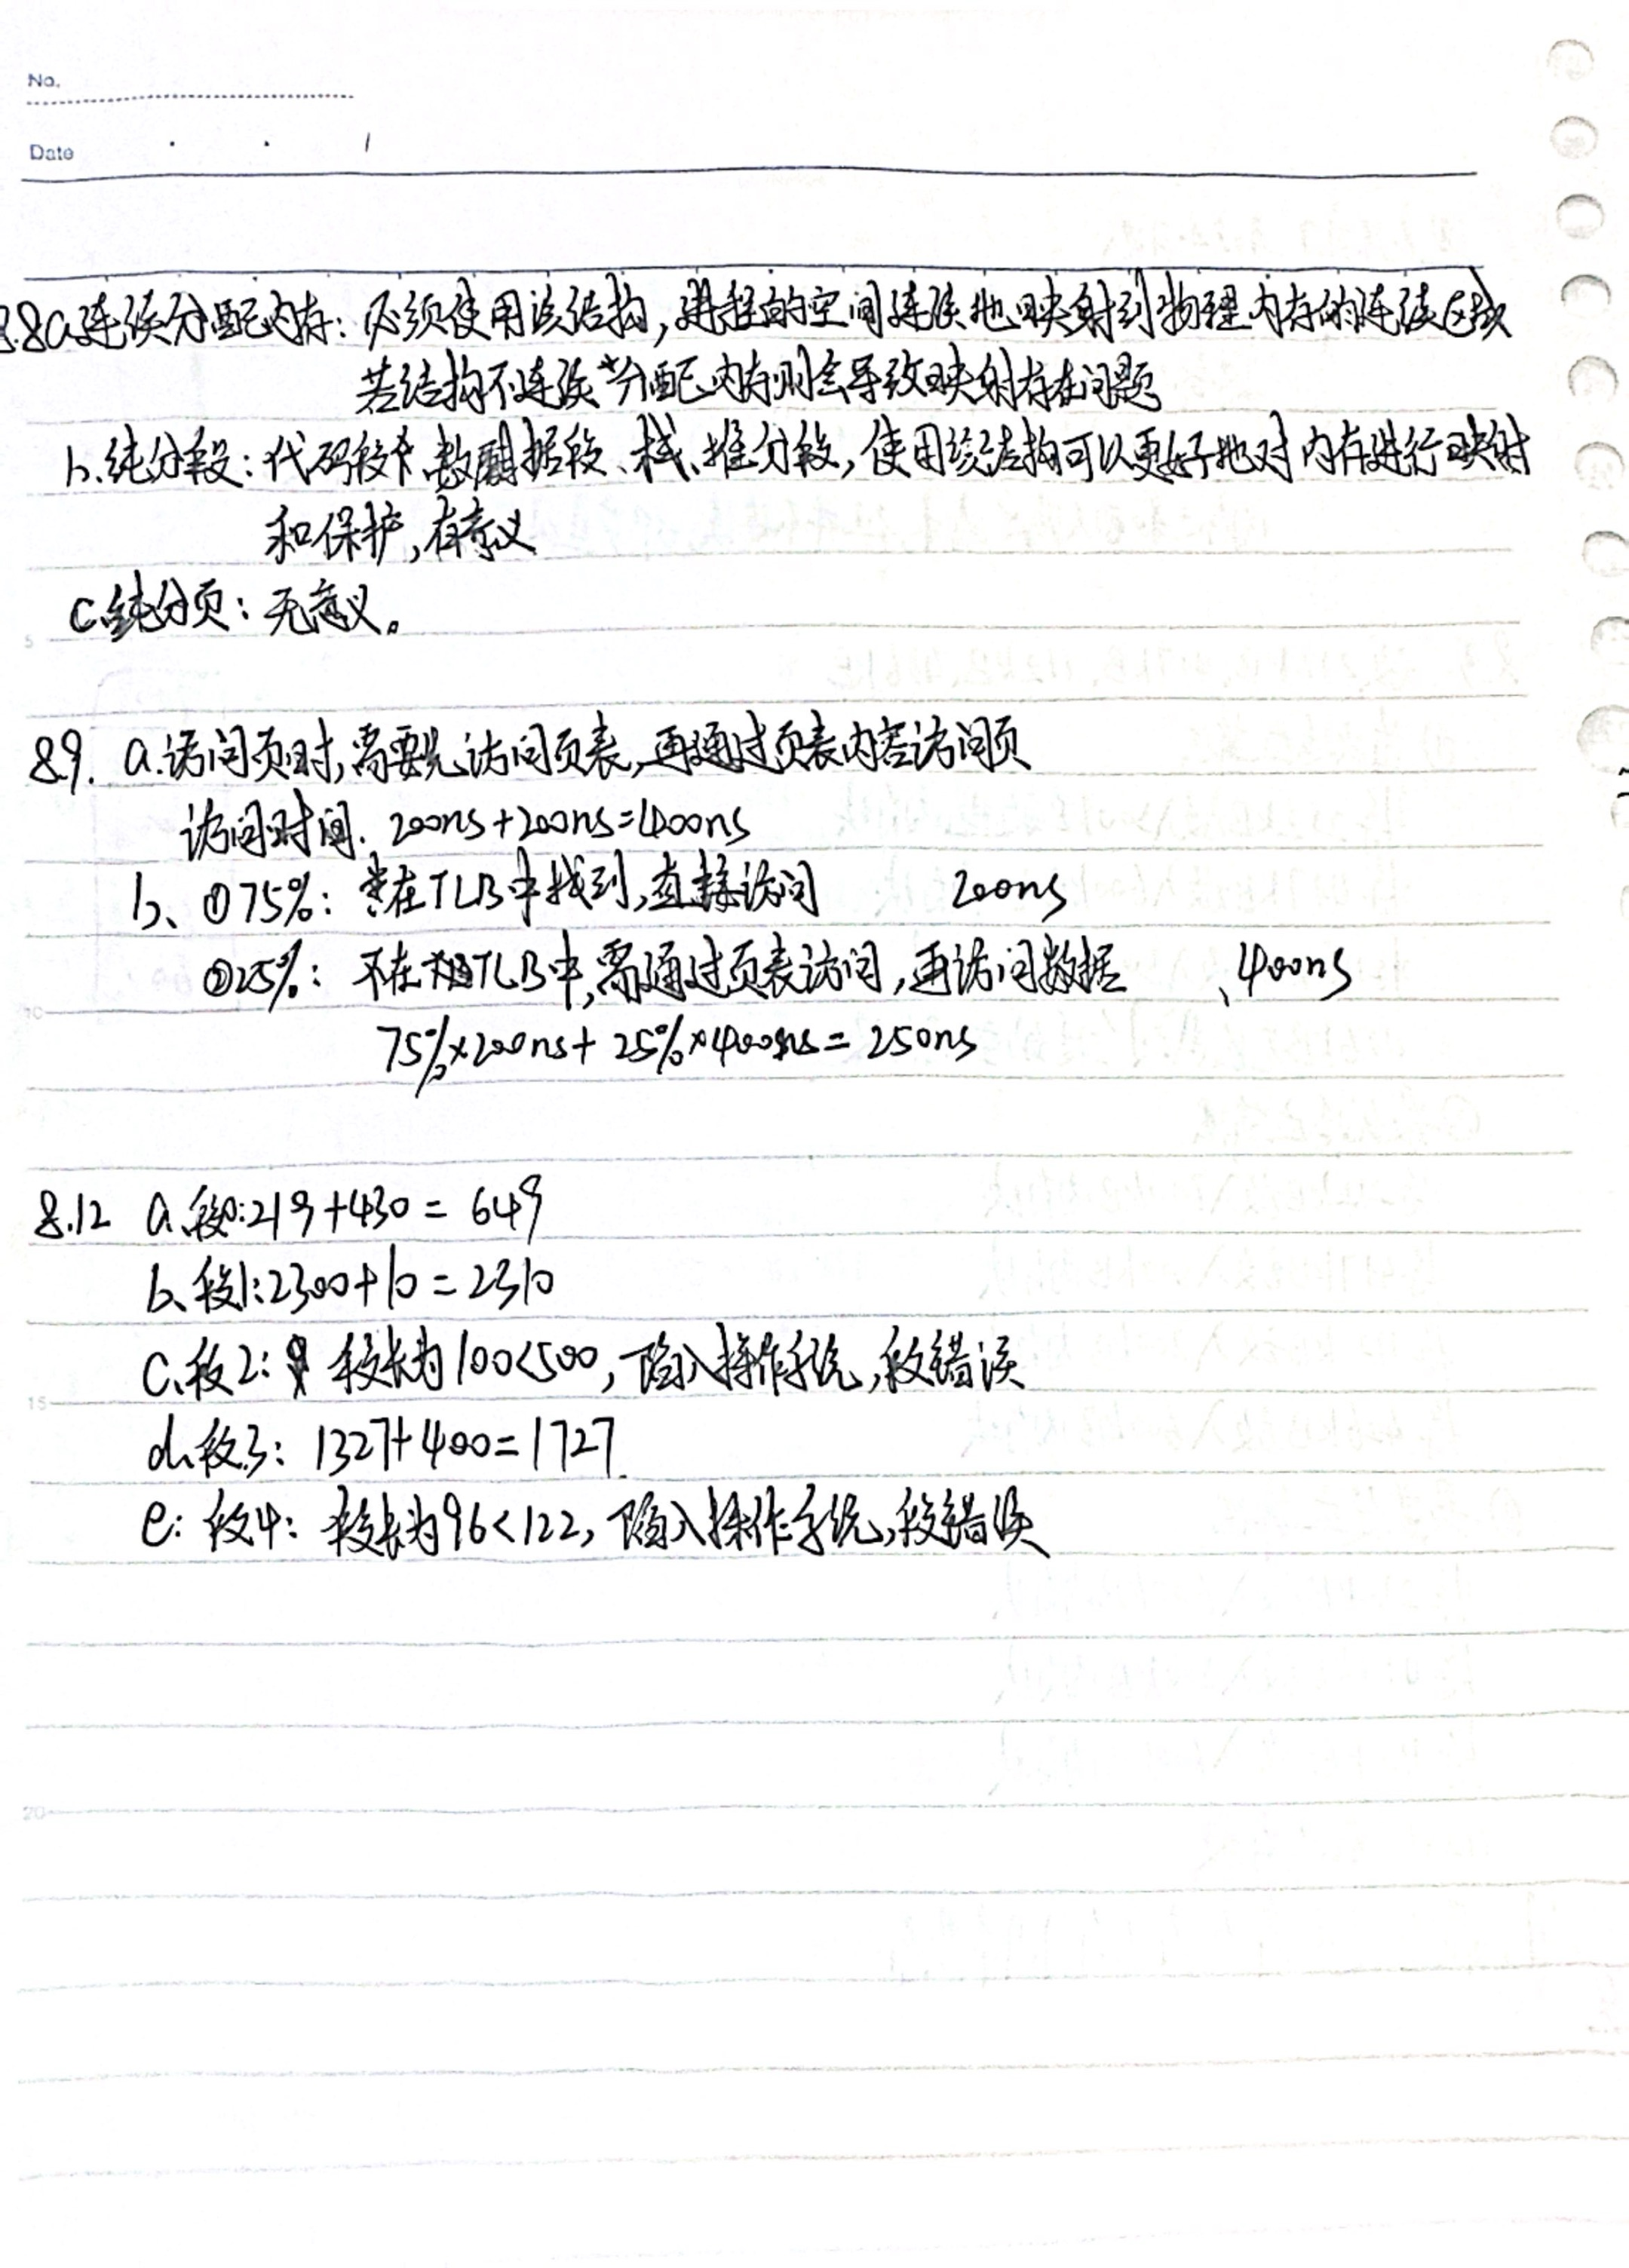 No.
Date . . /
8.8 a.连续分配内存:必须使用该结构,进程的空间连续地映射到物理内存的连续区域
若结构不连续 分配内存则会导致映射存在问题
b.纯分段:代码段、数据段、栈、堆分段,使用该结构可以更好地对内存进行映射
和保护,有意义
c.纯分页:无意义。
5
8.9. a.访问页时,需要先访问页表,再通过页表内容访问页
访问时间. 200ns+200ns=400ns
b、①75%:在TLB中找到,直接访问 200ns
②25%:不在TLB中,需通过页表访问,再访问数据 、400ns
10
75%×200ns+25%×400ns=250ns
8.12 a、段0:219+430=649
b、段1:2300+10=2310
c、段2:段长为100<500,陷入操作系统,段错误
15
d、段3:1327+400=1727.
e:段4:段长为96<122,陷入操作系统,段错误
20